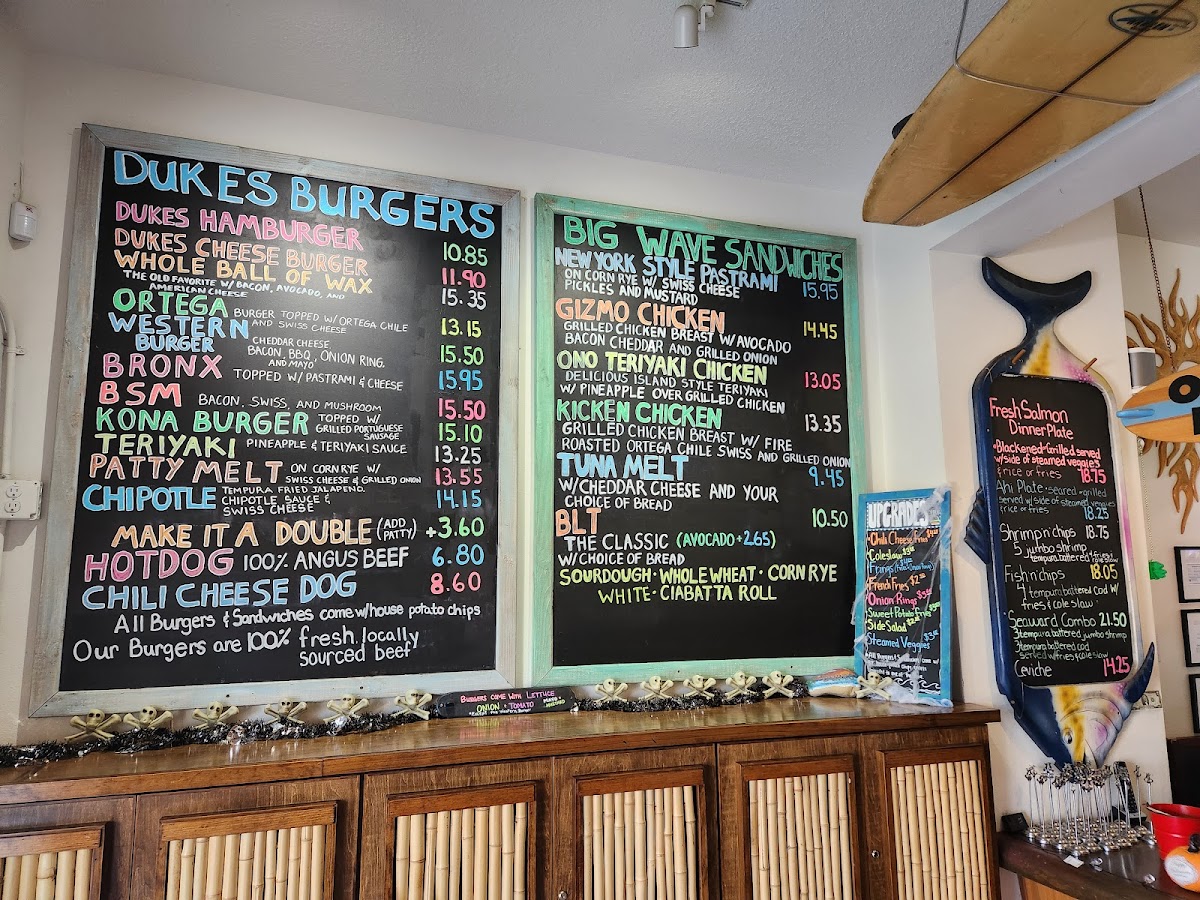 DUKES BURGERS
DUKES HAMBURGER 10.85
DUKES CHEESE BURGER 11.90
WHOLE BALL OF WAX 15.35
THE OLD FAVORITE W/ BACON, AVOCADO, AND
AMERICAN CHEESE
ORTEGA BURGER TOPPED W/ ORTEGA CHILE 13.15
AND SWISS CHEESE
WESTERN BURGER CHEDDAR CHEESE 15.50
BACON, BBQ, ONION RING,
AND MAYO
BRONX TOPPED W/ PASTRAMI & CHEESE 15.95
BSM BACON, SWISS, AND MUSHROOM 15.50
KONA BURGER TOPPED W/ 15.10
GRILLED PORTUGUESE
SAUSAGE
TERIYAKI PINEAPPLE & TERIYAKI SAUCE 13.25
PATTY MELT ON CORN RYE W/ 13.55
SWISS CHEESE & GRILLED ONION
CHIPOTLE TEMPURA FRIED JALAPENO, 14.15
CHIPOTLE SAUCE &
SWISS CHEESE
MAKE IT A DOUBLE (ADD PATTY) +3.60
HOTDOG 100% ANGUS BEEF 6.80
CHILI CHEESE DOG 8.60
All Burgers & Sandwiches come w/ house potato chips
Our Burgers are 100% fresh, locally
sourced beef
BIG WAVE SANDWICHES
NEW YORK STYLE PASTRAMI 15.95
ON CORN RYE W/ SWISS CHEESE
PICKLES AND MUSTARD
GIZMO CHICKEN 14.45
GRILLED CHICKEN BREAST W/ AVOCADO
BACON CHEDDAR AND GRILLED ONION
ONO TERIYAKI CHICKEN 13.05
DELICIOUS ISLAND STYLE TERIYAKI
W/ PINEAPPLE OVER GRILLED CHICKEN
KICKEN CHICKEN 13.35
GRILLED CHICKEN BREAST W/ FIRE
ROASTED ORTEGA CHILE SWISS AND GRILLED ONION
TUNA MELT 9.45
W/ CHEDDAR CHEESE AND YOUR
CHOICE OF BREAD
BLT 10.50
THE CLASSIC (AVOCADO+2.65)
W/ CHOICE OF BREAD
SOURDOUGH · WHOLE WHEAT · CORN RYE
WHITE · CIABATTA ROLL
BURGERS COME WITH LETTUCE
ONION · TOMATO
UPGRADES
Chili Cheese Fries
Coleslaw
Frings
French Fries
Onion Rings
Sweet Potato Fries
Side Salad
Steamed Veggies
Fresh Salmon
Dinner Plate
Blackened or Grilled served
w/ side of steamed veggies
& rice or fries 18.75
Ahi Plate - seared or grilled
served w/ side of steamed veggies
rice or fries 18.25
Shrimp n' chips 18.75
5 jumbo shrimp
tempura battered w/ fries & cole slaw
Fish n' chips 18.05
4 tempura battered cod w/
fries & cole slaw
Seaward Combo 21.50
3 tempura battered jumbo shrimp
3 tempura battered cod
served w/ fries & cole slaw
Ceviche 14.25